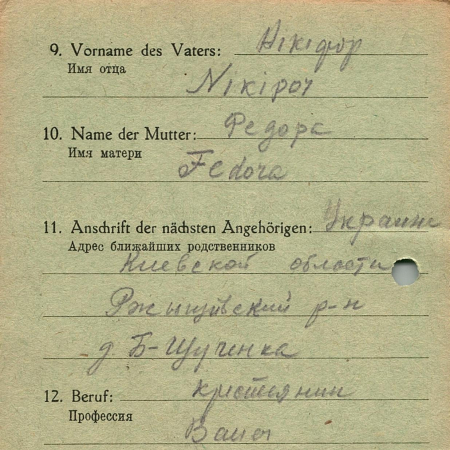 9. Vorname des Vaters: Нікіфор
Имя отца
Nikipor
10. Name der Mutter: Федора
Имя матери
Fedora
11. Anschrift der nächsten Angehörigen: Украине
Адрес ближайших родственников
Киевской области
Ржыщивский р-н
д. Б-Щучинка
12. Beruf: крестиянин
Профессия
Bauer